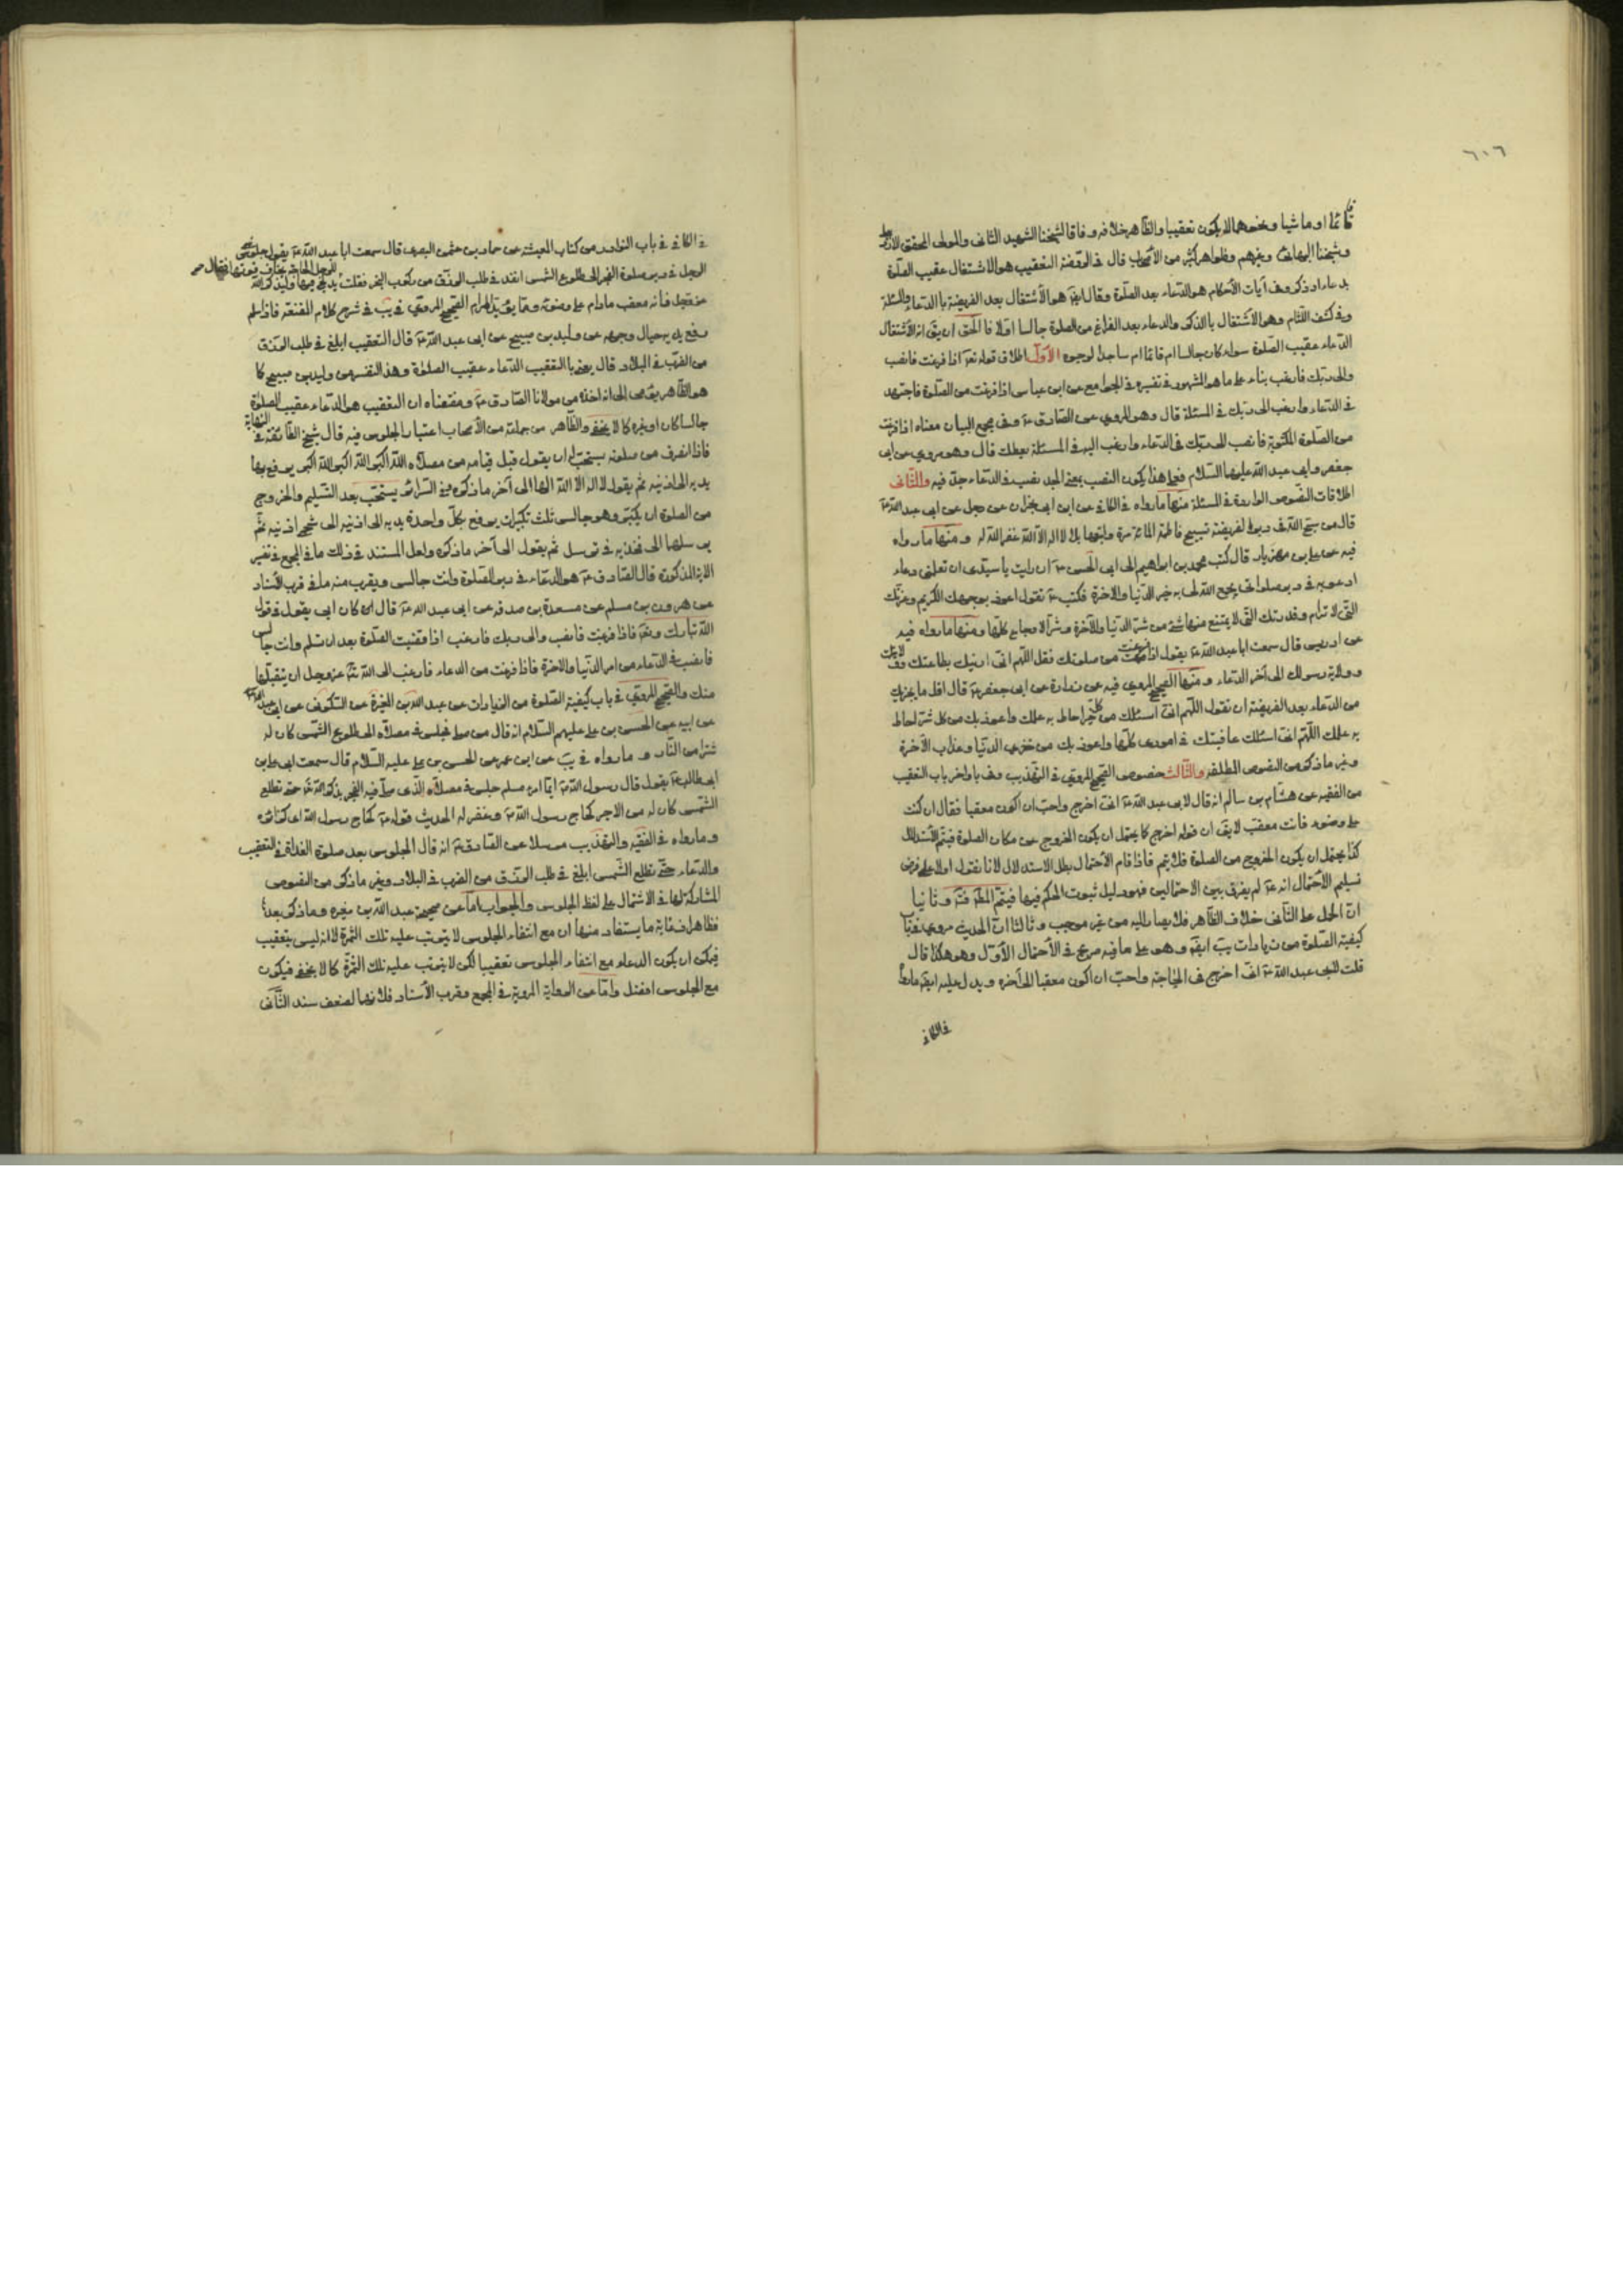 ٦٠٦
قائما او ماشيا و نحوهما لا يكون تعقيبا والظاهر خلافه وفاقا لشيخنا الشهيد الثانى والمولى المحقق الاردبيلى
وشيخنا البهائى وغيرهم وظواهر كثير من الأصحاب قال فى الروضة التعقيب هو الاشتغال عقيب الصلوة
بدعاء او ذكر وفى آيات الأحكام هو الدعاء بعد الصلوة وقال ايضا هو الأشتغال بعد الفريضة بالدعاء والمسئلة
وفى كشف اللثام وهو الأشتغال بالذكر والدعاء بعد الفراغ من الصلوة جالسا اولا فالحق ان يق انه الأشتغال
الدعاء عقيب الصلوة سواء كان جالسا ام قائما ام ساجدا لوجوه الأول اطلاق قوله تعالى اذا فرغت فانصب
والى ربك فارغب بناء على ما هو المشهور فى تفسيره فى الجوامع عن ابن عباس اذا فرغت من الصلوة فاجتهد
فى الدعاء وارغب الى ربك فى المسئلة قال وهو المروى عن الصادق ع وفى مجمع البيان معناه اذا فرغت
من الصلوة المكتوبة فانصب الى ربك فى الدعاء وارغب اليه فى المسئلة يعطك قال وهو مروى عن ابى
جعفر وابى عبد الله عليهما السلام فعلى هذا يكون النصب بمعنى الجد نصب فى الدعاء جد فيه والثانى
اطلاقات النصوص الواردة فى المسئلة منها ما رواه فى الكافى عن ابن ابى نجران عن رجل عن ابى عبد الله ع
قال من سبح الله فى دبر الفريضة تسبيح فاطمة المائة مرة واتبعها بلا اله الا الله غفر الله له و منها ما رواه
فيه عن على بن مهزيار قال كتب محمد بن ابراهيم الى ابى الحسن ع ان رايت يا سيدى ان تعلمنى دعاء
ادعو به فى دبر صلواتى يجمع الله لى به خير الدنيا والاخرة فكتب ع تقول اعوذ بوجهك الكريم وعزتك
التى لا ترام وقدرتك التى لا يمتنع منها شئ من شر الدنيا والآخرة وشر الاوجاع كلها و منها ما رواه فيه
عن ادريس قال سمعت ابا عبد الله ع يقول اذا فرغت من صلوتك فقل اللهم انى ادينك بطاعتك وولايتك
وولاية رسولك الى آخر الدعاء و منها الصحيح المروى فيه عن زرارة عن ابى جعفر ع قال اقل ما يجزيك
من الدعاء بعد الفريضة ان تقول اللهم انى اسئلك من كل خير احاط به علمك واعوذ بك من كل شر احاط
به علمك اللهم انى اسئلك عافيتك فى امورى كلها واعوذ بك من خزى الدنيا وعذاب الآخرة
وغير ما ذكر من النصوص المطلقة والثالث خصوص الصحيح المروى فى التهذيب وفى اواخر باب التعقيب
من الفقيه عن هشام بن سالم انه قال لابى عبد الله ع انى اخرج واحب ان اكون معقبا فقال ان كنت
على وضوء فانت معقب لا يق ان قوله اخرج كما يحتمل ان يكون الخروج عن مكان الصلوة فيتم الأستدلال
كذا يحتمل ان يكون الخروج من الصلوة فلا يتم فاذا قام الأحتمال بطل الاستدلال لانا نقول اولا على فرض
تسليم الأحتمال انه ع لم يفرق بين الاحتمالين فهو دليل ثبوت الحكم فيهما فيتم المط و ثانيا
ان الحمل على الثانى خلاف الظاهر فلا يصار اليه من غير موجب و ثالثا ان الحديث مروى
كيفية الصلوة من زيادات يب ايضا وهو على ما فيه صريح فى الأحتمال الأول وهو هكذا قال
قلت لابى عبد الله ع انى اخرج فى الحاجة واحب ان اكون معقبا الى آخره ويدل عليه ايضا ما رواه
فى الكافى
فى الكافى فى باب النوادر من كتاب المعيشة عن حماد بن عثمن البصرى قال سمعت ابا عبد الله ع يقول جلوس
الرجل فى دبر صلوة الفجر الى طلوع الشمس انفذ فى طلب الرزق من ركوب البحر فقلت يكون للرجل الحاجة يخاف فوتها فقال يدلج فيها وليذكر الله
عز وجل فانه معقب مادام على وضوئه ومما يؤيد المرام الصحيح المروى فى يب فى شرح كلام المقنعة فاذا سلم
رفع يديه حيال وجهه عن وليد بن صبيح عن ابى عبد الله ع قال التعقيب ابلغ فى طلب الرزق
من الضرب فى البلاد قال يعنى بالتعقيب الدعاء عقيب الصلوة وهذا التفسير من وليد بن صبيح كما
هو الظاهر يق من الى انه اخذه من مولانا الصادق ع ومقتضاه ان التعقيب هو الدعاء عقيب الصلوة
جالسا كان او غيره كما لا يخفى والظاهر من جماعة من الأصحاب اعتبار الجلوس فيه قال شيخ الطائفة فى النهاية
فاذا انصرف من صلوته يستحب له ان يقول قبل قيامه من مصلاه الله اكبر الله اكبر الله اكبر يرفع بها
يديه الى اذنيه ثم يقول لا اله الا الله الها الى آخر ما ذكره فى السرائر يستحب بعد التسليم والخروج
من الصلوة ان يكبر وهو جالس ثلث تكبيرات يرفع بكل واحدة يديه الى اذنيه الى شحمى اذنيه ثم
يرسلها الى فخذيه فى ترسل ثم يقول الى آخر ما ذكره ولعل المستند فى ذلك ما فى المجمع فى تفسير
الاية المذكورة قال الصادق ع هو الدعاء فى دبر الصلوة وانت جالس ويقرب منه ما فى قرب الأسناد
عن هرون بن مسلم عن مسعدة بن صدقه عن ابى عبد الله ع قال كان ابى يقول فى قول
الله تبارك وتعالى فاذا فرغت فانصب والى ربك فارغب اذا قضيت الصلوة بعد ان تسلم وانت جالس
فانصب فى الدعاء من امر الدنيا والاخرة فاذا فرغت من الدعاء فارغب الى الله تعالى عز وجل ان يتقبلها
منك والصحيح المروى فى باب كيفية الصلوة من الزيادات عن عبد الله بن المغيرة عن السكونى عن ابى عبد الله ع
عن ابيه عن الحسن بن على عليهم السلام انه قال من صلى فجلس فى مصلاه الى طلوع الشمس كان له
سترا من النار و ما رواه فى يب عن ابن عمر عن الحسن بن على عليه السلام قال سمعت ابى على بن
ابى طالب ع يقول قال رسول الله ص ايما امرء مسلم جلس فى مصلاه الذى صلى فيه الفجر يذكر الله تعالى حتى تطلع
الشمس كان له من الاجر كحاج رسول الله ص وغفر له الحديث قوله ع كحاج رسول الله
و ما رواه فى الفقيه والتهذيب مرسلا عن الصادق ع انه قال الجلوس بعد صلوة الغداة فى التعقيب
والدعاء حتى تطلع الشمس ابلغ فى طلب الرزق من الضرب فى البلاد وغير ما ذكر من النصوص
المشاركة لها فى الاشتمال على لفظ الجلوس والجواب اما عن صحيحة عبد الله بن مغيره وما ذكر بعدها
فظاهر اذ غاية ما يستفاد منها ان مع انتفاء الجلوس لا يترتب عليه تلك الثمرة لا انه ليس بتعقيب
فيمكن ان يكون الدعاء مع انتفاء الجلوس تعقيبا لكن لا يترتب عليه تلك الثمرة كما لا يخفى فيكون
مع الجلوس افضل واما عن الرواية المروية فى المجمع وقرب الأسناد فلانهما لضعف سند الثانى